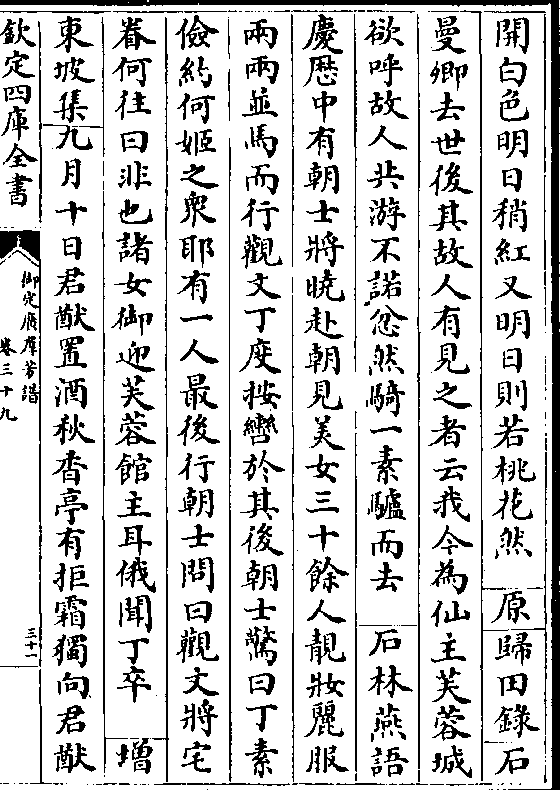 開白色明日稍紅又明日則若桃花然　原歸田錄石
曼卿去世後其故人有見之者云我今為仙主芙蓉城
欲呼故人共游不諾忿然騎一素驢而去　石林燕語
慶厯中有朝士將曉赴朝見美女三十餘人靚妝麗服
兩兩並馬而行觀文丁度按轡於其後朝士驚曰丁素
儉約何姬之衆耶有一人最後行朝士問曰觀文將宅
眷何往曰非也諸女御迎芙蓉館主耳俄聞丁卒　增
東坡集九月十日君猷置酒秋香亭有拒霜獨向君猷
欽定四庫全書
御定廣羣芳譜
卷三十九
三十一